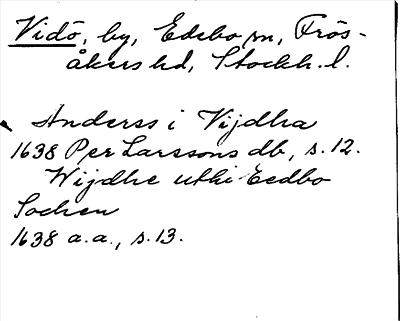 Vidö, by, Edebo sn, Frös-
åkers hd, Stockh. l.
Anderss i Vijdha
1638 Per Larssons db, s. 12.
Wijdhe uthi Eedbo
Sochen
1638 a.a., s. 13.